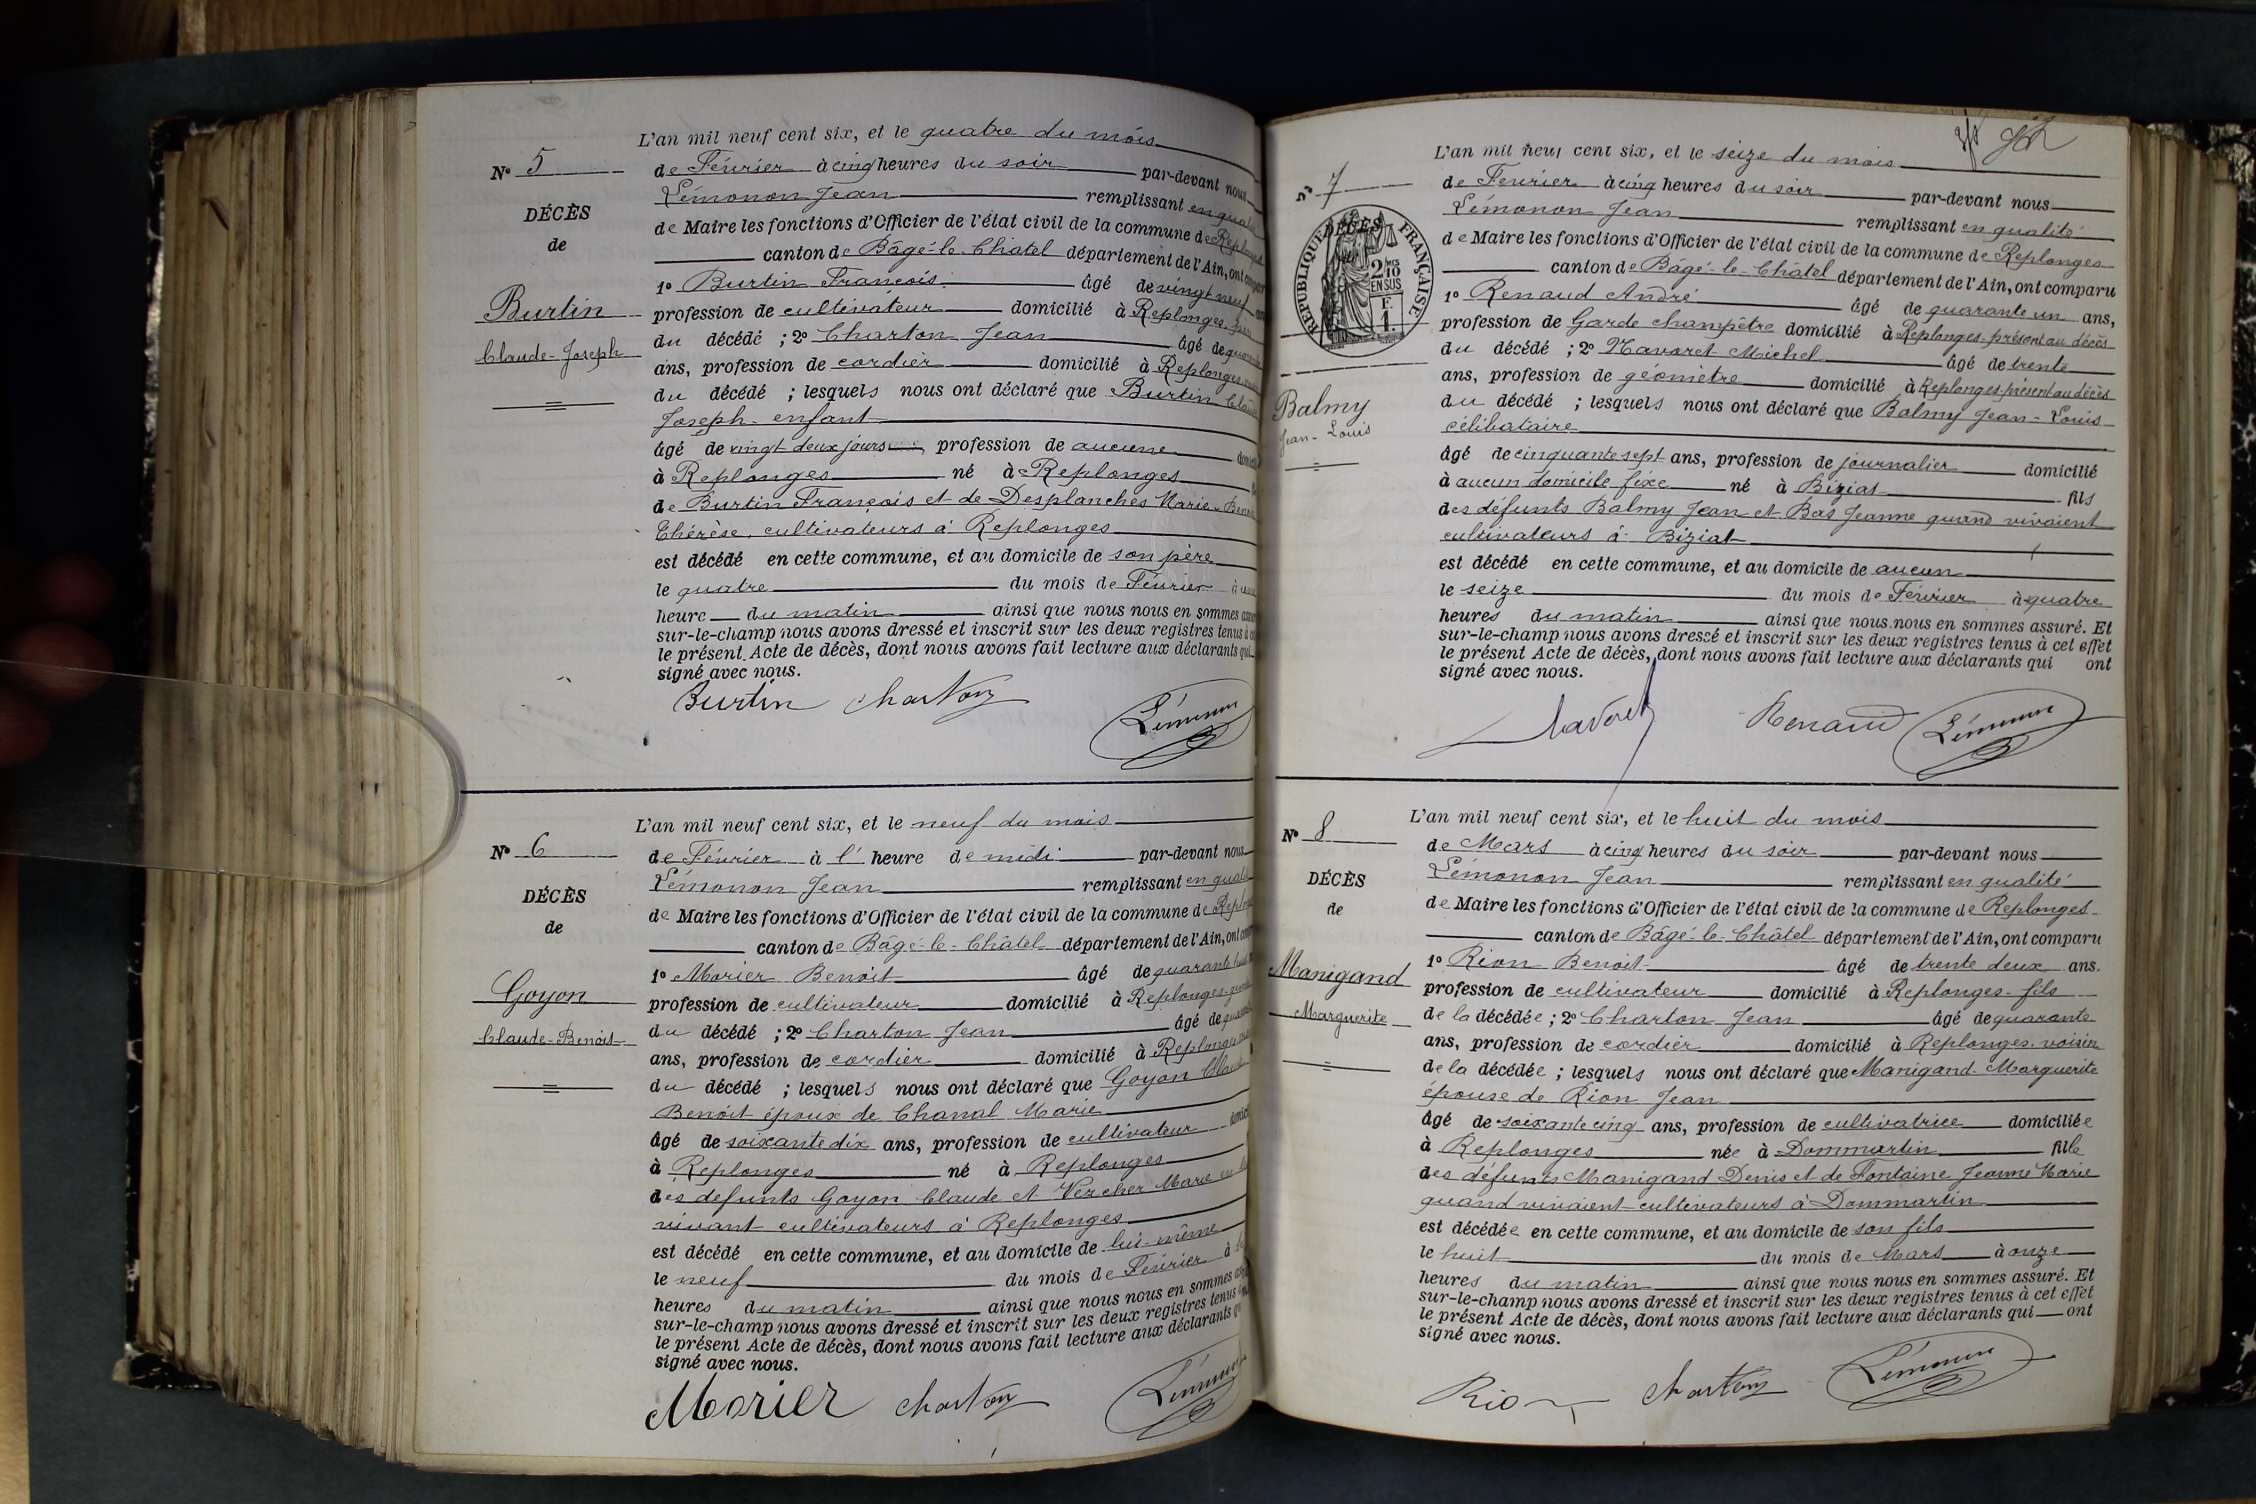 L'an mil neuf cent six, et le quatre du mois
N° 5
de Février à cinq heures du soir par-devant nous
Lémonon Jean remplissant en
DÉCÈS
de Maire les fonctions d'Officier de l'état civil de la commune de
de
canton de Bâgé-le-Châtel département de l'Ain, ont
1° Burtin François âgé de vingt neuf
Burtin
profession de cultivateur domicilié à Replonges
du décédé ; 2° Charton Jean âgé de
Claude-Joseph
ans, profession de cordier domicilié à Replonges
du décédé ; lesquels nous ont déclaré que Burtin
Joseph enfant
âgé de vingt deux jours profession de aucune
à Replonges né à Replonges
de Burtin François et de Desplanches Marie
Thérèse, cultivateurs à Replonges
est décédé en cette commune, et au domicile de son père
le quatre du mois de Février à
heure du matin ainsi que nous nous en sommes
sur-le-champ nous avons dressé et inscrit sur les deux registres tenus à
le présent Acte de décès, dont nous avons fait lecture aux déclarants qui
signé avec nous.
Burtin Charton Lémonon
L'an mil neuf cent six, et le neuf du mois
N° 6
de Février à l'heure de midi par-devant nous
Lémonon Jean remplissant en
DÉCÈS
de Maire les fonctions d'Officier de l'état civil de la commune de
de
canton de Bâgé-le-Châtel département de l'Ain, ont
1° Morier Benoit âgé de quarante
Goyon
profession de cultivateur domicilié à Replonges
du décédé ; 2° Charton Jean âgé de
Claude-Benoit
ans, profession de cordier domicilié à Replonges
du décédé ; lesquels nous ont déclaré que Goyon
Benoit époux de Chanal Marie
âgé de soixante dix ans, profession de cultivateur
à Replonges né à Replonges
des défunts Goyon Claude et Vercher
vivant cultivateurs à Replonges
est décédé en cette commune, et au domicile de lui-même
le neuf du mois de Février à
heures du matin ainsi que nous nous en sommes
sur-le-champ nous avons dressé et inscrit sur les deux registres tenus
le présent Acte de décès, dont nous avons fait lecture aux déclarants
signé avec nous.
Morier Charton Lémonon
L'an mil neuf cent six, et le seize du mois
N° 7
de Fevrier à cinq heures du soir par-devant nous
Lémonon Jean remplissant en qualité
DÉCÈS
RÉPUBLIQUE FRANÇAISE
2/10
EN SUS
F.
1.
de Maire les fonctions d'Officier de l'état civil de la commune de Replonges
canton de Bâgé-le-Châtel département de l'Ain, ont comparu
1° Renaud André âgé de quarante un ans,
profession de Garde champêtre domicilié à Replonges, présent au décès
du décédé ; 2° Navoret Michel âgé de trente
ans, profession de géomètre domicilié à Replonges présent au décès
Balmy
Jean-Louis
du décédé ; lesquels nous ont déclaré que Balmy Jean-Louis
célibataire
âgé de cinquante sept ans, profession de journalier domicilié
à aucun domicile fixe né à Biziat fils
des défunts Balmy Jean et Bas Jeanne quand vivaient
cultivateurs à Biziat
est décédé en cette commune, et au domicile de aucun
le seize du mois de Février à quatre
heures du matin ainsi que nous nous en sommes assuré. Et
sur-le-champ nous avons dressé et inscrit sur les deux registres tenus à cet effet
le présent Acte de décès, dont nous avons fait lecture aux déclarants qui ont
signé avec nous.
Navoret Renaud Lémonon
L'an mil neuf cent six, et le huit du mois
N° 8
de Mars à cinq heures du soir par-devant nous
Lémonon Jean remplissant en qualité
DÉCÈS
de Maire les fonctions d'Officier de l'état civil de la commune de Replonges
de
canton de Bâgé-le-Châtel département de l'Ain, ont comparu
1° Rion Benoit âgé de trente deux ans.
Manigand
profession de cultivateur domicilié à Replonges fils
Marguerite
de la décédée ; 2° Charton Jean âgé de quarante
ans, profession de cordier domicilié à Replonges voisin
de la décédée ; lesquels nous ont déclaré que Manigand Marguerite
épouse de Rion Jean
âgé de soixante cinq ans, profession de cultivatrice domiciliée
à Replonges née à Dommartin fille
des défunts Manigand Denis et de Fontaine Jeanne Marie
quand vivaient cultivateurs à Dommartin
est décédée en cette commune, et au domicile de son fils
le huit du mois de Mars à onze
heures du matin ainsi que nous nous en sommes assuré. Et
sur-le-champ nous avons dressé et inscrit sur les deux registres tenus à cet effet
le présent Acte de décès, dont nous avons fait lecture aux déclarants qui ont
signé avec nous.
Rion Charton Lémonon